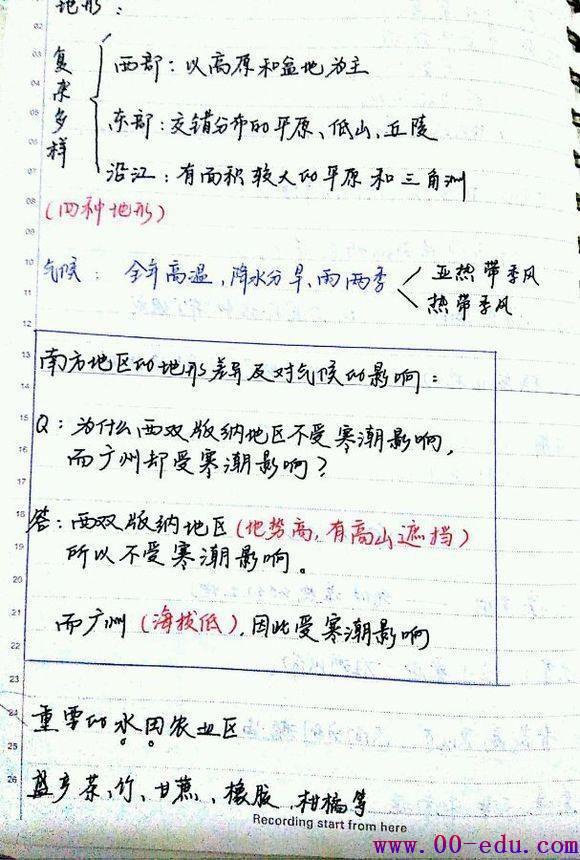 地形：
复杂多样
西部：以高原和盆地为主
东部：交错分布的平原、低山、丘陵
沿江：有面积较大的平原和三角洲
(四种地形)
气候： 全年高温，降水分旱、雨两季
亚热带季风
热带季风
南方地区的地形差异及对气候的影响：
Q：为什么西双版纳地区不受寒潮影响，
而广州却受寒潮影响？
答：西双版纳地区(地势高,有高山遮挡)
所以不受寒潮影响。
而广州(海拔低),因此受寒潮影响
重要的水田农业区
盛产茶、竹、甘蔗、橡胶、柑橘等
Recording start from here
www.00-edu.com